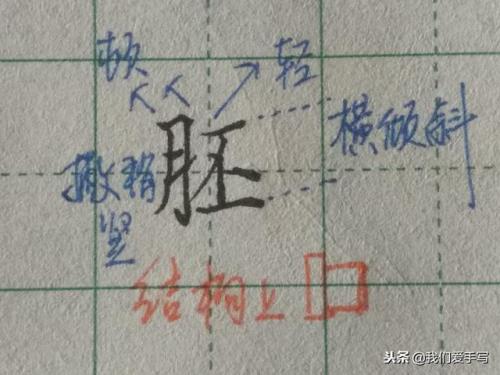 顿
轻
胚
横倾斜
撇稍
竖
结构上
头条 @我们爱手写